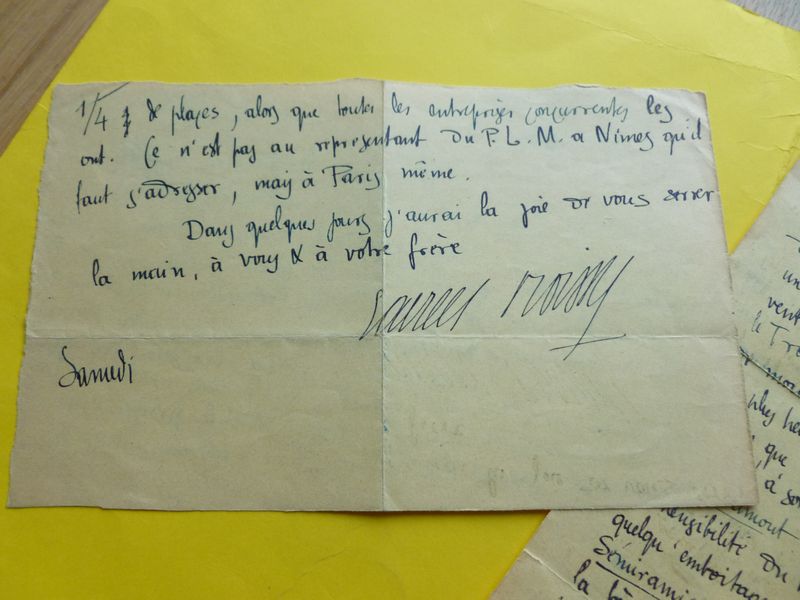 1/4 de places, alors que toutes les entreprises concurrentes les
ont. Ce n'est pas au représentant du P.L.M. a Nîmes qu'il
faut s'adresser, mais à Paris même.
Dans quelques jours j'aurai la joie de vous serrer
la main, à vous & à votre frère
Samedi
un
vent
le Tré
plus he
que
à so
sensibilité du
quelqu'emboitar
Sémirami
la